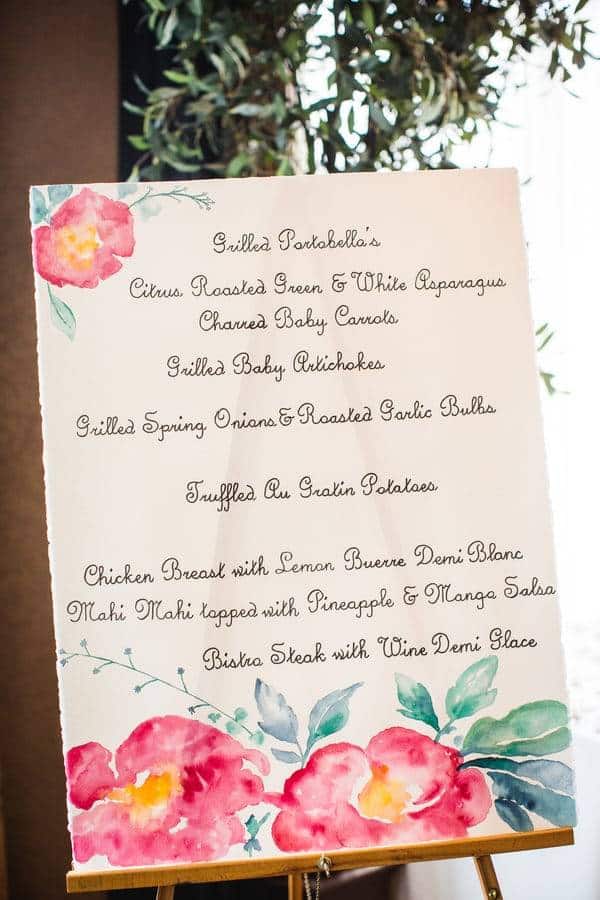 Grilled Portabella's
Citrus Roasted Green & White Asparagus
Charred Baby Carrots
Grilled Baby Artichokes
Grilled Spring Onions & Roasted Garlic Bulbs
Truffled Au Gratin Potatoes
Chicken Breast with Lemon Buerre Demi Blanc
Mahi Mahi topped with Pineapple & Mango Salsa
Bistro Steak with Wine Demi Glace